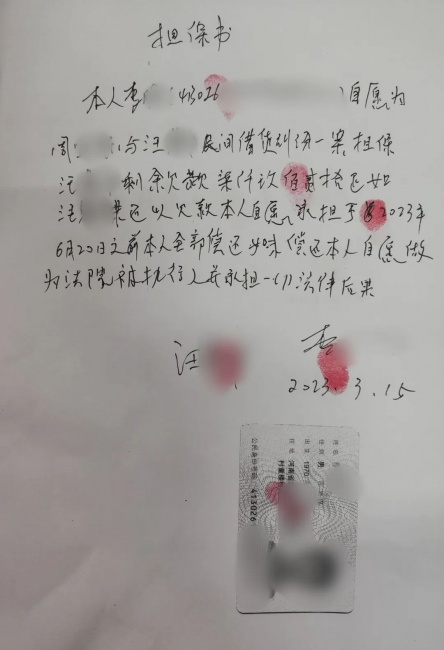 担保书
本人李 413026 自愿为
周 与汪 民间借贷纠纷一案担保
汪 剩余欠款柒仟玖佰 拾元如
汪 未还以欠款本人自愿承担于2023年
6月20日之前本人全部偿还如 偿还本人自愿做
为法院被执行人并承担一切法律后果
汪 李
2023.3.15
姓名
性别 男
出生 1970
住址 河南省
公民身份号码 413026